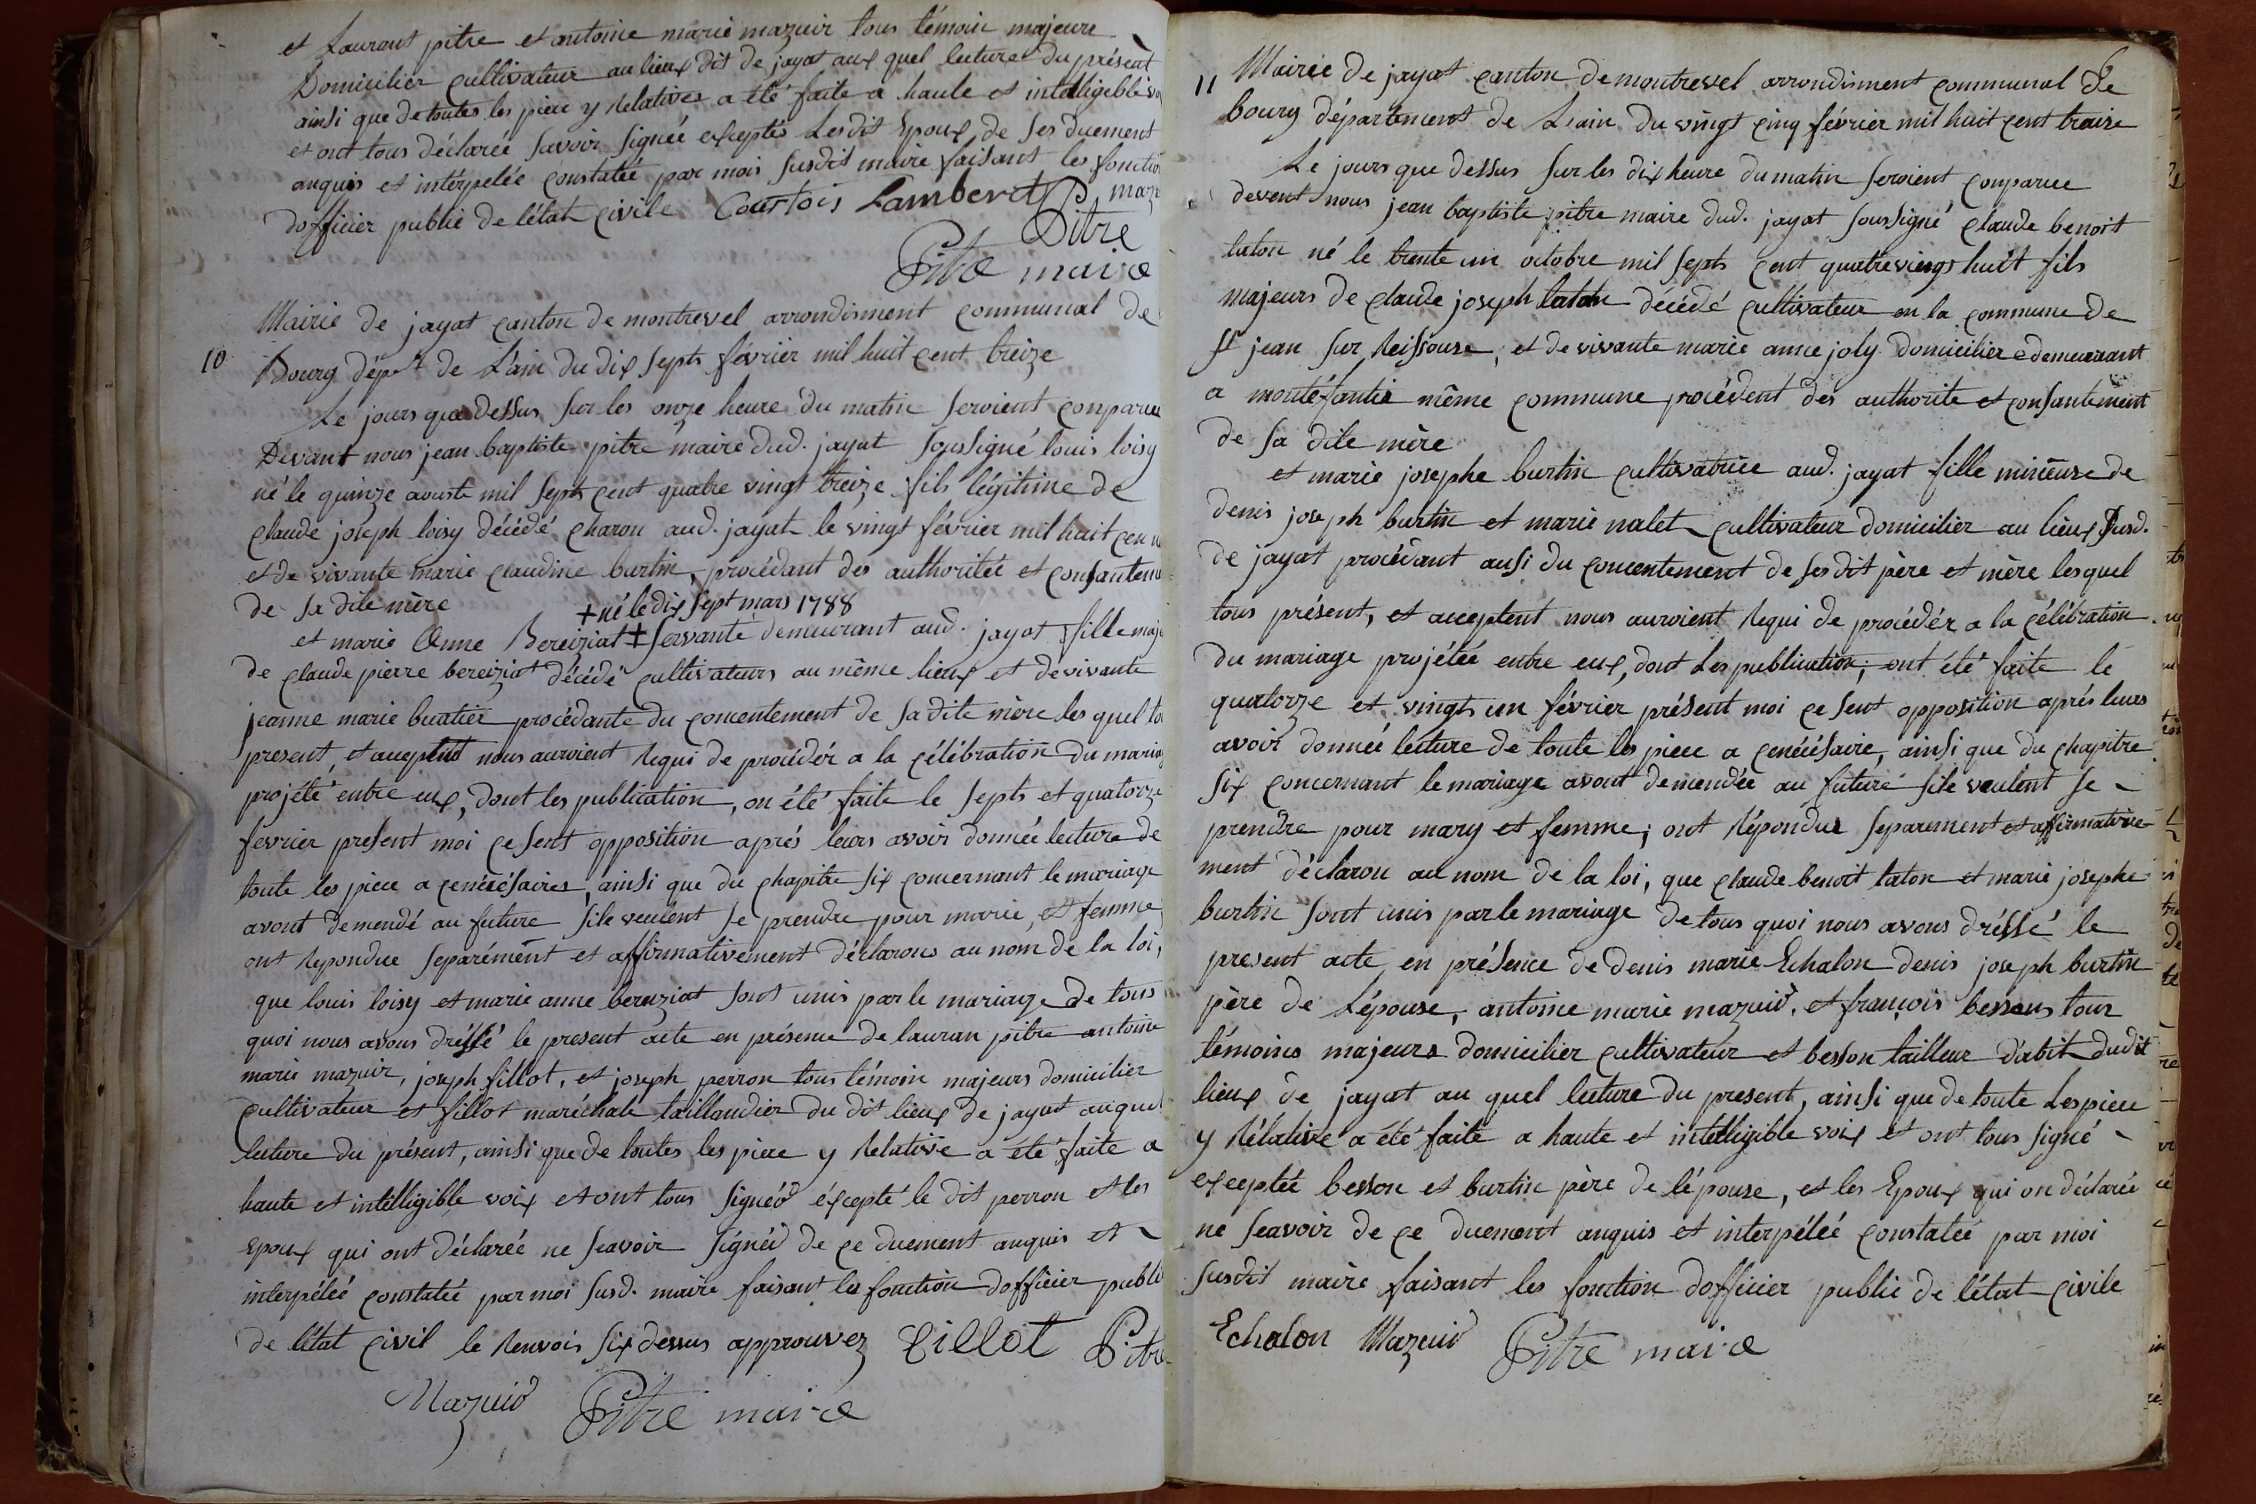 et Laurant pitre et antoine marie mazuir tous témoin majeure
Domicilier cultivateur au lieux dit de jayat aux quel lecture du présent
ainsi que de toutes les piece y Relatives a été faite a haute et intelligible
et ont tous déclarée savoir signée exceptés Lesdit Epoux, de ses duement
anquis et intérpelée constatée par mois susdit maire faisant les fonction
dofficier public de l'état civile Courtois Lamberet maz
Pitre
Pitre maire
Mairie de jayat canton de montrevel arrondisment communal de
10 Bourg dépt de L'ain du dix septs février mil huit cent treize
Le jours que dessus sur les onze heure du matin seroient conparue
Devant nous jean baptiste pitre maire dud. jayat soussigné louis loisy
né le quinze aouste mil septs cent quatre vingt treize fils légitime de
claude joseph loisy décédé charon aud. jayat le vingt février mil huit cen
et de vivante marie claudine burtin, procédant des authoritée et consanteme
de sa dite mère + né le dix sept mars 1788
et marie Anne Bereiziat + servante demeurant aud. jayat fille maj
de claude pierre bereiziat décédé cultivateurs au même lieux et de vivante
jeanne marie buatier procédante du concentement de sa dite mère les quel to
present, et acceptent nous auroient Requi de procédér a la célébration du mariag
projété entre eux, dont les publication, on été faite le septs et quatorze
fevrier present moi ce sent opposition aprés leurs avoir donnée lecture de
toute les piece a cenécésaires, ainsi que du chapitre six concernant le mariage
avont demendé au future sile veulent se prendre pour marie, et femme
ont Repondue separément et affirmativement déclarons au nom de la loi,
que louis loisy et marie anne bereziat sont unis par le mariage de tous
quoi nous avons dréssé le present acte en présence de lauran pitre antoine
marie mazuir, joseph fillot, et joseph perron tous témoin majeurs domicilier
cultivateur et fillot maréchale taillandier du dit lieux de jayat auquel
lecture du présent, ainsi que de toutes les piece y Relative a été faite a
haute et intelligible voix et ont tous signéé éxcepté le dit perron et les
Epoux qui ont déclarée ne seavoir signéé de ce duement anquis et
interpélée constatée par moi susd. maire faisant les fonction dofficier public
de l'état civil le Renvois six dessus approuvez fillot Pitre
Mazuir Pitre maire
6
11 Mairie de jayat canton de montrevel arrondisment communal de
bourg département de L'ain du vingt cinq février mil huit cent traize
Le jours que dessus sur les dix heure du matin seroient conparue
devent nous jean baptiste pitre maire dud. jayat soussigné claude benoit
laton né le trente un octobre mil septs cent quatrevings huit fils
majeurs de claude joseph laton décédé cultivateur en la commune de
st jean sur Reissouse, et de vivante marie anne joly domicilier e demeurant
a montéfantie même commune procédent des authorite et consantement
de sa dite mère
et marie josephe burtin cultivatrice aud. jayat fille mineure de
denis joseph burtin et marie nalet cultivateur domicilier au lieux susd.
de jayat procédant ausi du concentement de ses dit père et mère lesquel
tous présent, et acceptent nous auroient Requi de procédér a la célébration
du mariage projétée entre eux, dont Les publication, ont été faite le
quatorze et vingts un février présent moi ce sent opposition aprés leurs
avoir donnée lecture de toute les piece a cenécésaire, ainsi que du chapitre
six concernant le mariage avont demendée au future sile veulent se
prendre pour mary et femme; ont Répondue separement et affirmative
ment déclarou au nom de la loi, que claude benoit laton et marie josephe
burtin sont unis par le mariage de tous quoi nous avons dréssé le
present acte en présence de denis marie Echalon denis joseph burtin
père de Lépouse, antoine marie mazuir, et françois besson tous
témoins majeurs domicilier cultivateur et besson tailleur d'abit dudit
lieux de jayat au quel lecture du present, ainsi que de toute Les piece
y Rélative a été faite a haute et intelligible voix et ont tous signé
exceptée besson et burtin père de lépouse, et les Epoux qui on déclarée
ne seavoir de ce duement anquis et interpélée constatée par moi
susdit maire faisant les fonction dofficier public de l'état civile
Echalon Mazuir Pitre maire